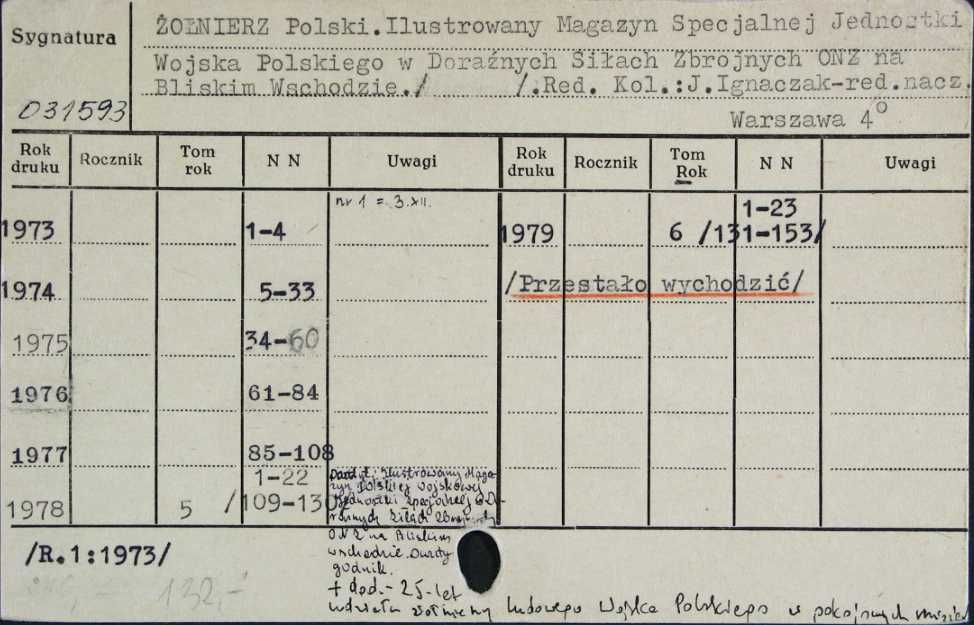 Sygnatura
031593
ŻOŁNIERZ Polski.Ilustrowany Magazyn Specjalnej Jednostki
Wojska Polskiego w Doraźnych Siłach Zbrojnych ONZ na
Bliskim Wschodzie./ /.Red. Kol.:J.Ignaczak-red.nacz.
Warszawa 4°
Rok druku Rocznik Tom rok N N Uwagi Rok druku Rocznik Tom Rok N N Uwagi
nr 1 = 3.XII.
1973 1-4
1979 6 1-23 /131-153/
1974 5-33
/Przestało wychodzić/
1975 34-60
1976 61-84
1977 85-108
1978 5 1-22 /109-130/
Ilustrowany Maga-
zyn Polskiej Wojskowej
Jednostki Specjalnej w Do-
raźnych Siłach
ONZ na Bliskim
Wschodzie. Dwuty
godnik.
+ dod. - 25-let
udziału żołnierzy Ludowego Wojska Polskiego w pokojowych
/R.1:1973/
132,-